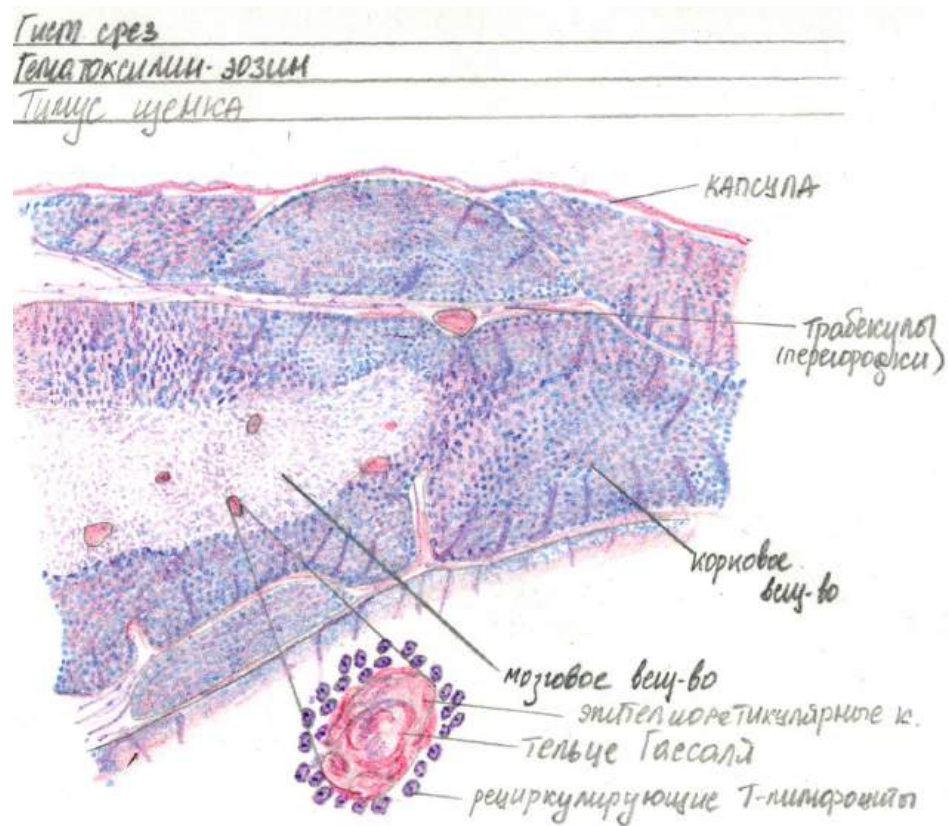 Гист срез
Гематоксилин-эозин
Тимус щенка
капсула
трабекулы
(перегородки)
корковое
вещ-во
мозговое вещ-во
эпителиоретикулярные к.
тельце Гассаля
рециркулирующие Т-лимфоциты